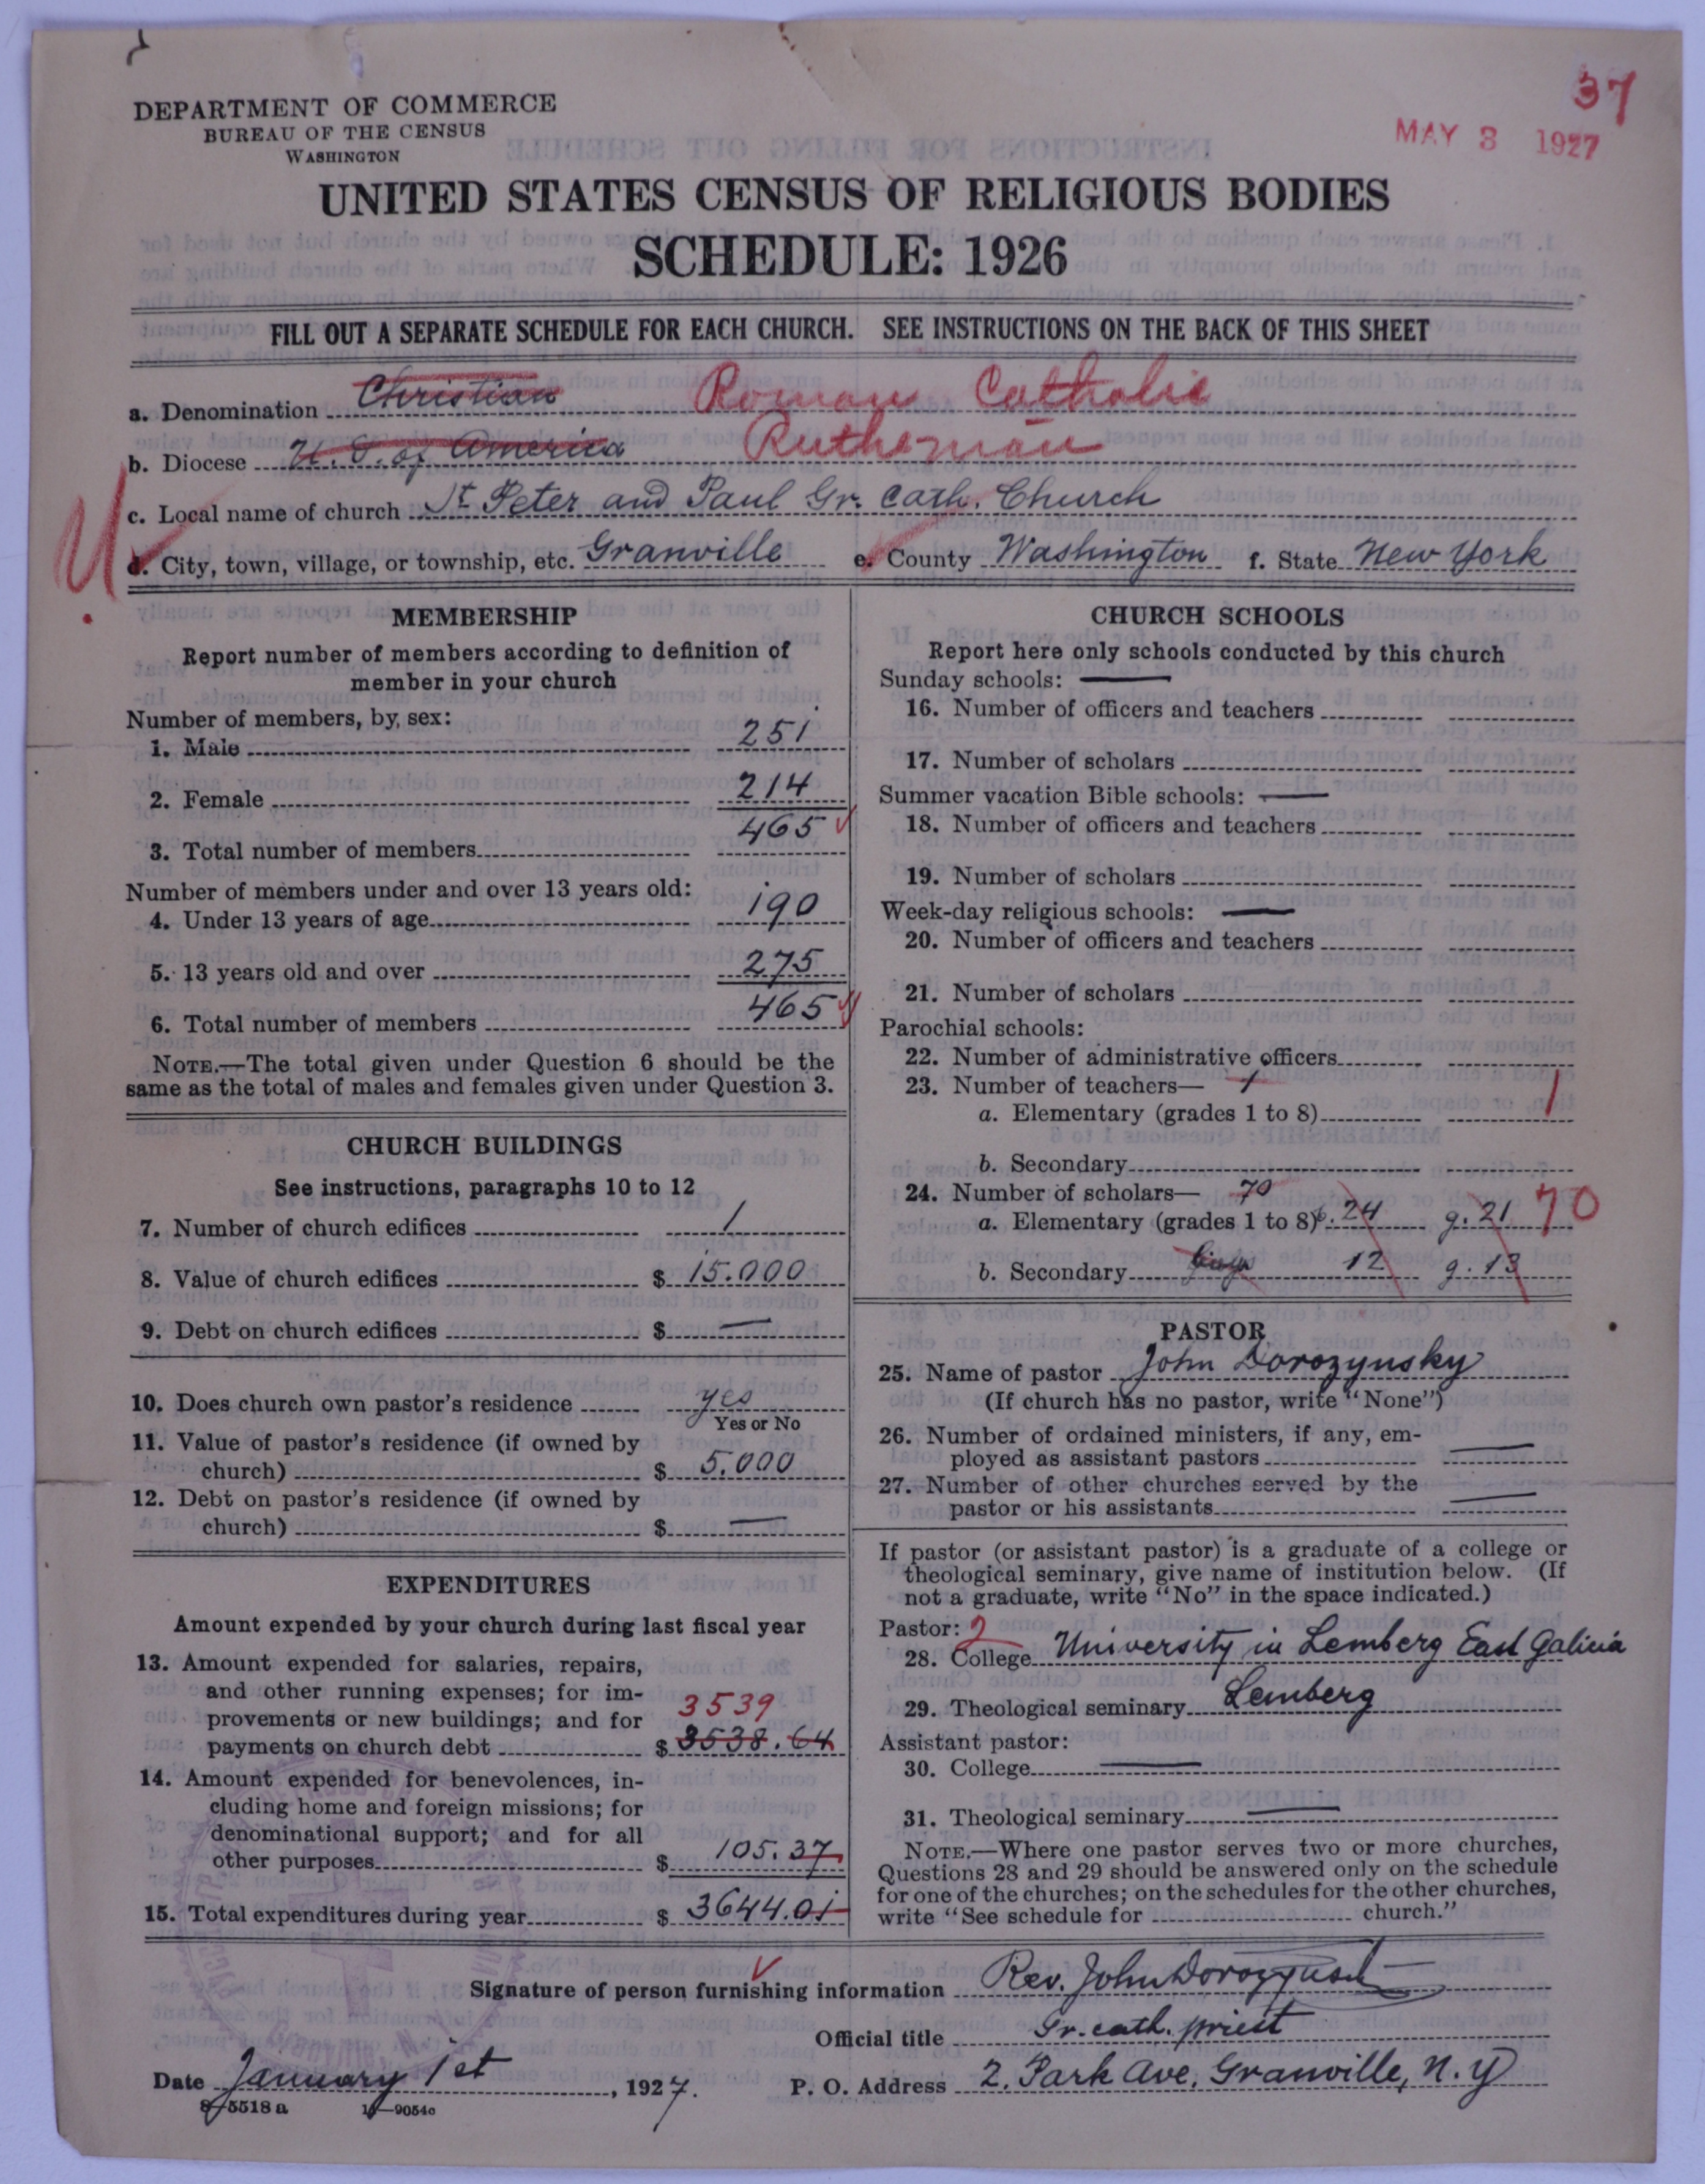 37
MAY 3 1927
DEPARTMENT OF COMMERCE
BUREAU OF THE CENSUS
WASHINGTON
UNITED STATES CENSUS OF RELIGIOUS BODIES
SCHEDULE: 1926
FILL OUT A SEPARATE SCHEDULE FOR EACH CHURCH. SEE INSTRUCTIONS ON THE BACK OF THIS SHEET
a. Denomination Christian Roman Catholic
b. Diocese U. S. of America Ruthenian
c. Local name of church St Peter and Paul Gr. Cath. Church
d. City, town, village, or township, etc. Granville e. County Washington f. State New York
MEMBERSHIP
Report number of members according to definition of
member in your church
Number of members, by sex:
1. Male 251
2. Female 214
3. Total number of members 465
Number of members under and over 13 years old:
4. Under 13 years of age 190
5. 13 years old and over 275
6. Total number of members 465
NOTE.—The total given under Question 6 should be the
same as the total of males and females given under Question 3.
CHURCH BUILDINGS
See instructions, paragraphs 10 to 12
7. Number of church edifices 1
8. Value of church edifices $ 15.000
9. Debt on church edifices $ —
10. Does church own pastor's residence yes
Yes or No
11. Value of pastor's residence (if owned by
church) $ 5.000
12. Debt on pastor's residence (if owned by
church) $ —
EXPENDITURES
Amount expended by your church during last fiscal year
13. Amount expended for salaries, repairs,
and other running expenses; for im-
provements or new buildings; and for 3539
payments on church debt $ 3538.64
14. Amount expended for benevolences, in-
cluding home and foreign missions; for
denominational support; and for all
other purposes $ 105.37
15. Total expenditures during year $ 3644.01
CHURCH SCHOOLS
Report here only schools conducted by this church
Sunday schools: —
16. Number of officers and teachers
17. Number of scholars
Summer vacation Bible schools: —
18. Number of officers and teachers
19. Number of scholars
Week-day religious schools: —
20. Number of officers and teachers
21. Number of scholars
Parochial schools:
22. Number of administrative officers
23. Number of teachers— 1
a. Elementary (grades 1 to 8) 1
b. Secondary
24. Number of scholars— 70
a. Elementary (grades 1 to 8) b. 24 g. 21 70
b. Secondary 12 g. 13
PASTOR
25. Name of pastor John Dorozynsky
(If church has no pastor, write "None")
26. Number of ordained ministers, if any, em-
ployed as assistant pastors —
27. Number of other churches served by the
pastor or his assistants —
If pastor (or assistant pastor) is a graduate of a college or
theological seminary, give name of institution below. (If
not a graduate, write "No" in the space indicated.)
Pastor: 2
28. College University in Lemberg East Galicia
29. Theological seminary Lemberg
Assistant pastor:
30. College —
31. Theological seminary —
NOTE.—Where one pastor serves two or more churches,
Questions 28 and 29 should be answered only on the schedule
for one of the churches; on the schedules for the other churches,
write "See schedule for church."
Signature of person furnishing information Rev. John Dorozynski
Official title Gr. cath. priest
Date January 1st, 1927. P. O. Address 2. Park Ave, Granville, N. Y
8—5518a 11—9054c